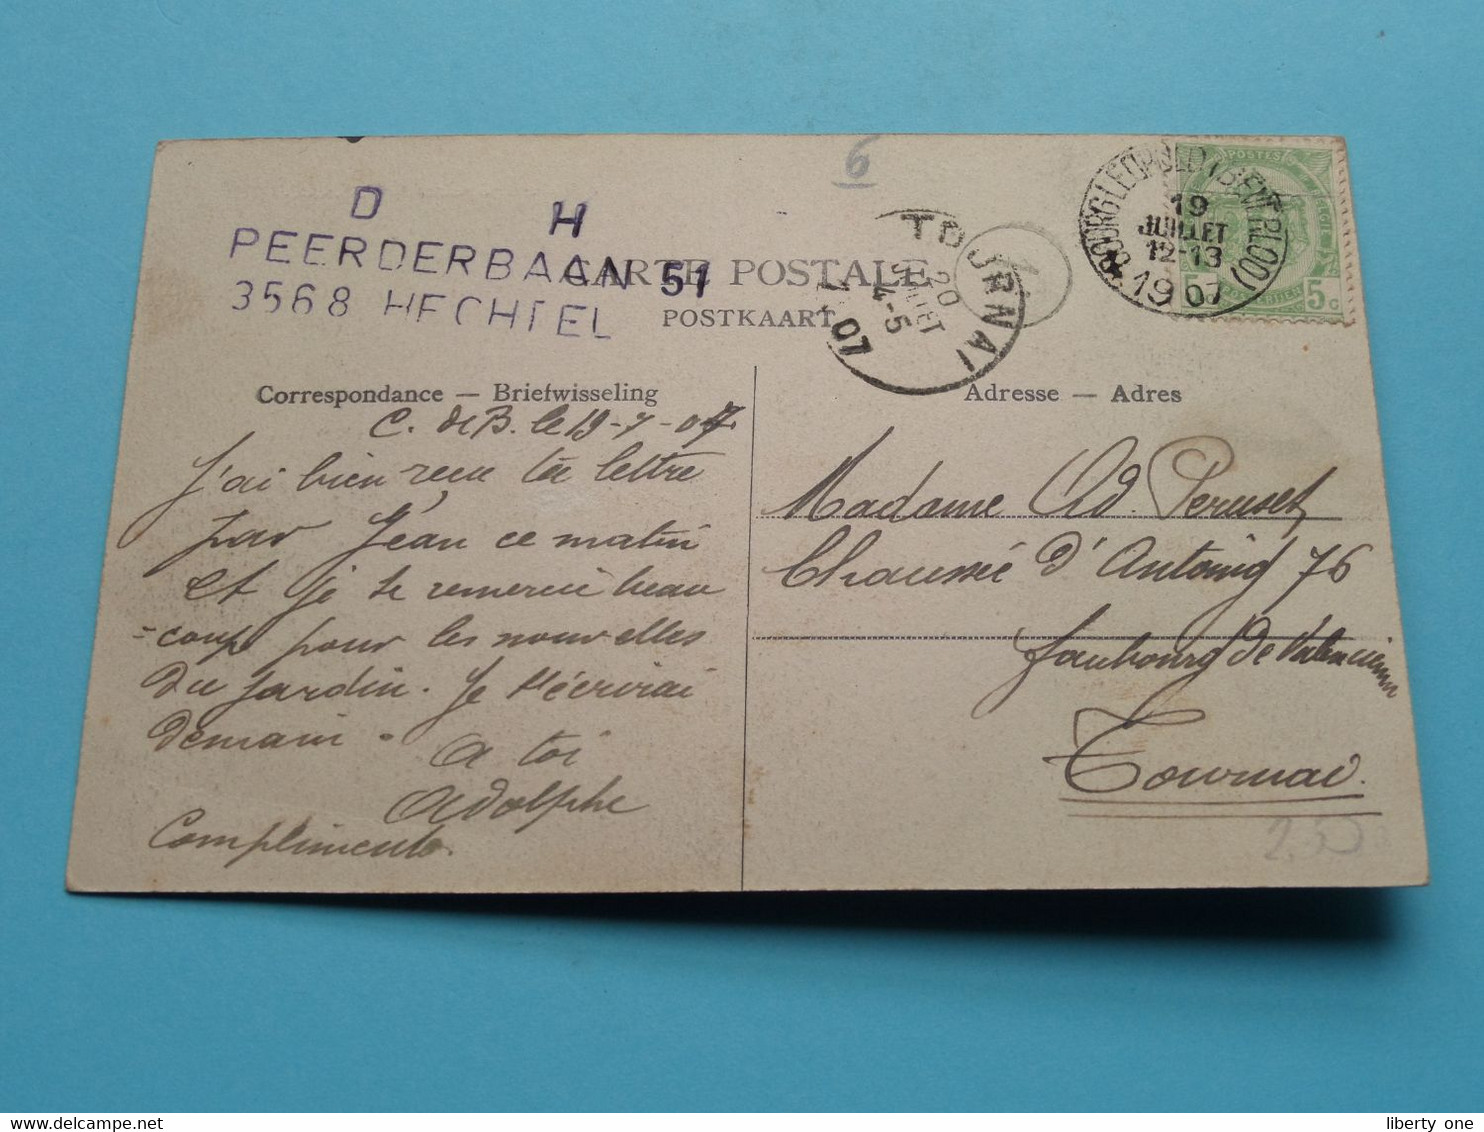 6
D H
PEERDERBAAN 51
3568 HECHTEL
CARTE POSTALE
POSTKAART
TOURNAI
20
JUILLET
4-5
07
BOURG-LEOPOLD (BEVERLOO)
19
JUILLET
12-13
1907
POSTES
5 c
Correspondance — Briefwisseling
Adresse — Adres
C. de B. le 19-7-07
J'ai bien reçu ta lettre
par Jean ce matin
et je te remercie beau
=coup pour les nouvelles
du jardin. Je t'écrirai
demain.
A toi
Adolphe
Compliments.
Madame Ad. Peruset
Chaussée d'Antoing 76
faubourg de Valenciennes
Tournai
2,50
liberty one